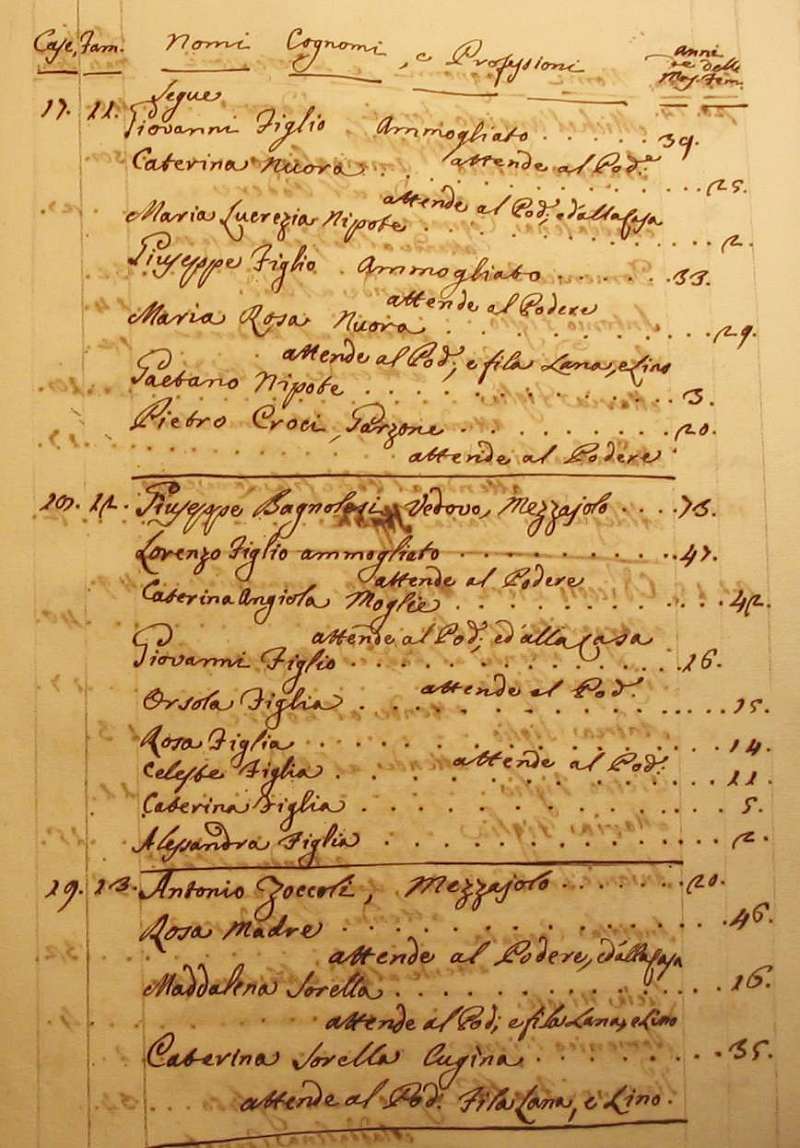 Case, Fam. Nomi Cognomi, e Professioni anni
delli
Mas. Fem.
Segue
17. 11.
Giovanni Figlio Ammogliato . . . . . 39.
attende al Pod.e
Caterina Nuora . . . . . . . . . . 25.
attende al Pod; ed'alla Casa
Maria Lucrezia Nipote . . . . . . . . . . 2.
Giuseppe Figlio . Ammogliato . . . . . . 33.
attende al Podere
Maria Rosa Nuora . . . . . . . . . . 29.
attende al Pod; e fila Lana, e Lino
Gaetano Nipote . . . . . . . . . . 3.
Pietro Croci, Garzone . . . . . . . . . . 20.
attende al Podere
12. Giuseppe Bagnolesi Vedovo, Mezzajolo . . . . 73.
Lorenzo Figlio ammogliato . . . . . . . . . . 47.
attende al Podere
Caterina Angiola Moglie . . . . . . . . . . 42.
attende al Pod; ed'alla Casa
Giovanni Figlio . . . . . . . . . . 16.
attende al Pod.
Orsola Figlia . . . . . . . . . . 15.
Rosa Figlia . . . . . . . . . . 14.
attende al Pod.
Celeste Figlia . . . . . . . . . . 11.
Caterina Figlia . . . . . . . . . . 5.
Alessandra Figlia . . . . . . . . . . 2.
19. 13. Antonio Zoccoli, Mezzajolo . . . . . . 20.
Rosa Madre . . . . . . . . . . 46.
attende al Podere, ed'alla Casa
Maddalena Sorella . . . . . . . . . . 16.
attende al Pod; e fila Lana, e Lino
Caterina Sorella Cugina . . . . . . . . . . 35.
attende al Pod. Fila Lana, e Lino.